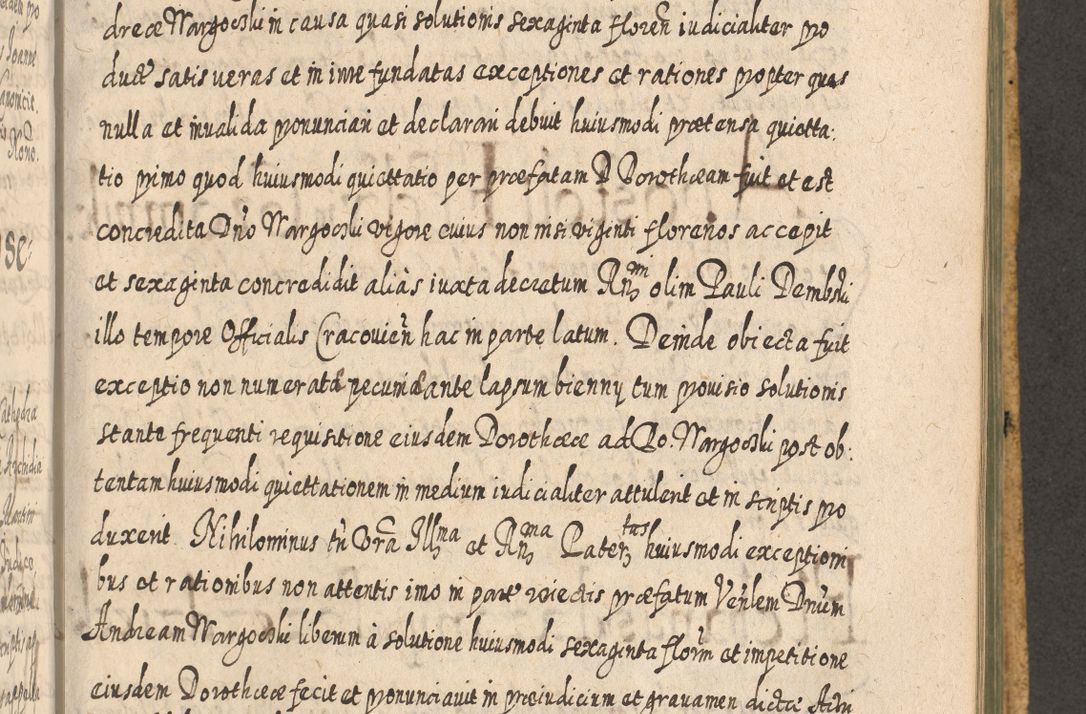 dreæ Wargocki in causa quasi solutionis sexaginta floreñ iudicialiter pro
duct satis veras et in iure fundatas exceptiones et rationes propter quas
nulla et invalida pronunciari et declarari debuit huiusmodi prætensa quietta:
tio primo quod huiusmodi quiettatio per præfatam D Dorothæam fuit et est
concredita Dño Wargocki vigore cuius non nisi viginti florenos accepit
et sexaginta concredidit aliàs iuxta decretum Rñmi olim Pauli Dembski
illo tempore Officialis Cracovieñ hac in parte latum. Deinde obiecta fuit
exceptio non numeratæ pecuniæ ante lapsum bienny tum provisio solutionis
stante frequenti requisitione eiusdem Dorotheæ ad Do. Wargocki post ob:
tentam huiusmodi quiettationem in medium iudicialiter attulerit et in scriptis pro
duxerit. Nihilominus tñ Vrã Illma et Rñma Paterts huiusmodi exceptioni
bus et rationibus non attentis imo in parte reiectis præfatum Veñlem Dnum
Andream Wargocki liberum à solutione huiusmodi sexaginta florm et impetitione
eiusdem Dorotheæ fecit et pronunciavit in præiudicium et gravamen dictæ